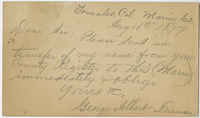 Tomales, Cal. Marin Co.
Aug 10th 1897
Dear Sir. Please send me
transfer of my name from your
County Register to this (Marin)
immediately & oblige
Yours &c.
George Albert